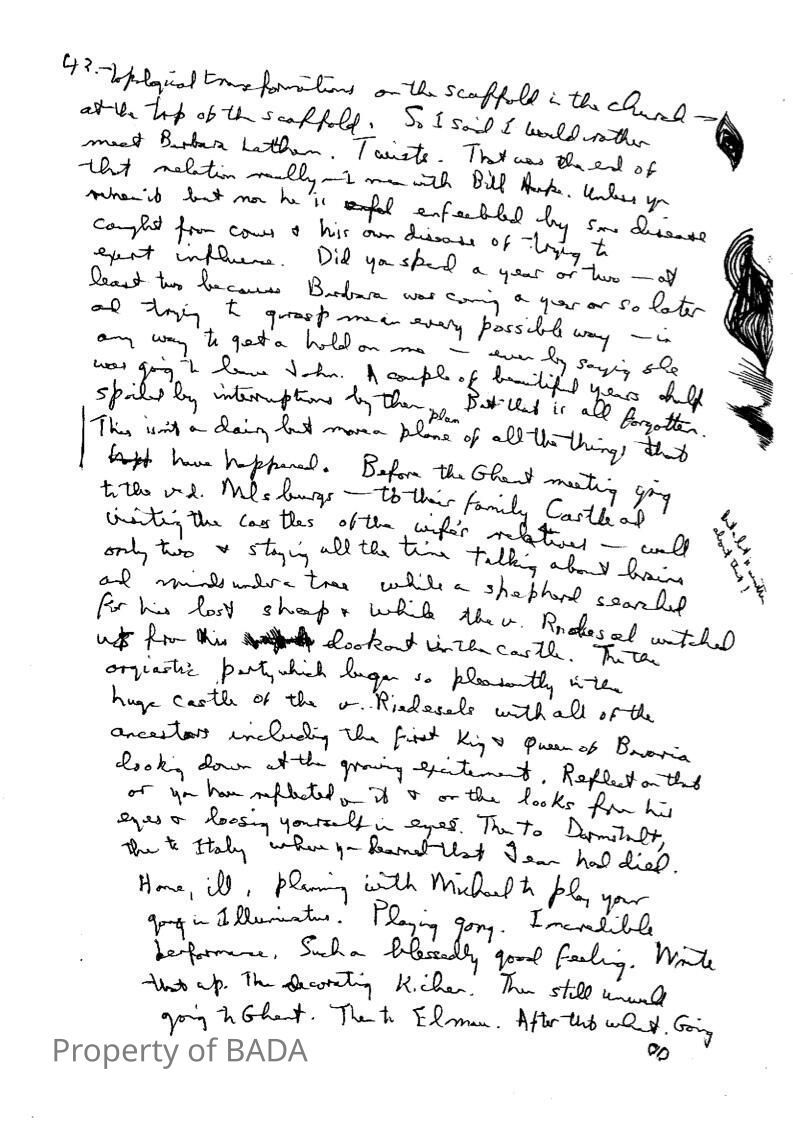 43. topological transformations on the scaffold in the church —
at the top of the scaffold. So I said I would rather
meet Barbara Latham. Twists. That was the end of
that relation really — I mean with Bill. Unless you
but now he is enfeebled by some disease
caught from cows & his own disease of trying to
exert influence. Did you spend a year or two — at
least two because Barbara was coming a year or so later
and trying to grasp me in every possible way — in
any way to get a hold on me — even by saying she
was going to leave John. A couple of beautiful years
spoiled by interruptions by them But that is all forgotten.
plan
This isn't a dairy but more a plane of all the things that
have happened. Before the Ghent meeting going
to the v.d. — to their family Castle and
visiting the castles of the wife's relatives — well
only two & staying all the time talking about brains
and minds under a tree while a shepherd searched
for his lost sheep & while the v. watched
us from his lookout in the castle. The the
orgiastic party which began so pleasantly in the
huge castle of the v. Riedesels with all of the
ancestors including the first King & Queen of Bavaria
looking down at the growing excitement. Reflect on that
or you have reflected on it & on the looks from his
eyes & loosing yourself in eyes. Then to Darmstadt,
then to Italy where you learned that Jean had died.
Home, ill, planning with Michael to play your
gong in Illuminatus. Playing gong. Incredible
performance. Such a blessedly good feeling. Write
that up. Then decorating Kichen. Then still unwell
going to Ghent. Then to Elmau. After that what. Going
but a lot is written
about that!
Property of BADA